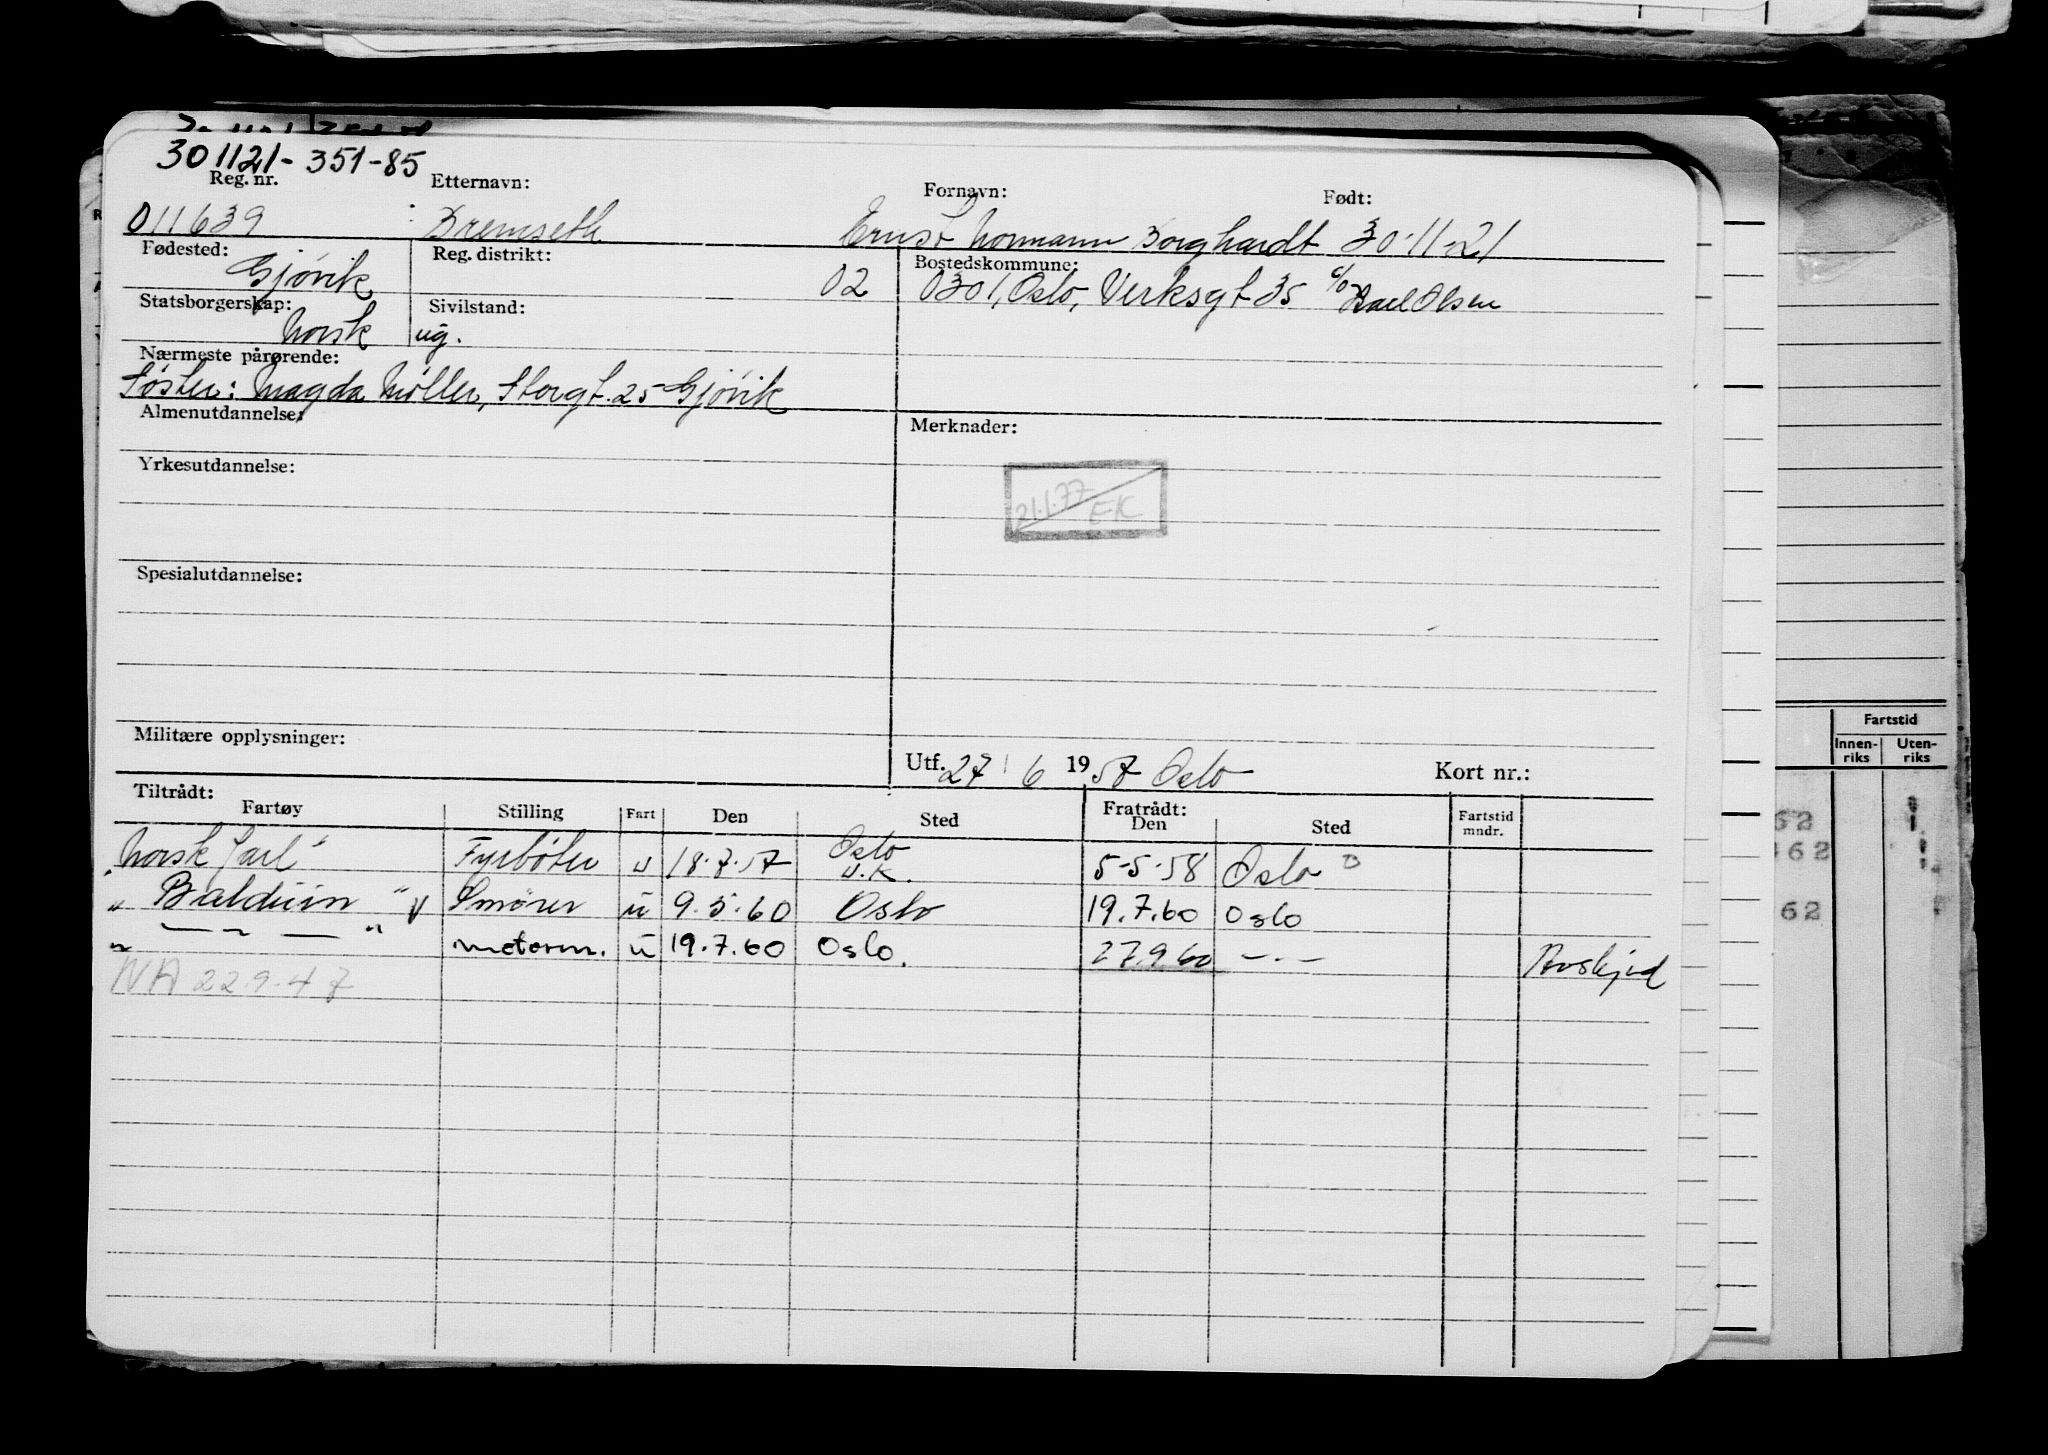 301121-351-85
Reg. nr. Etternavn: Fornavn: Født:
011639 Bremseth Ernst Normann Borghardt 30-11-21
Fødested: Reg. distrikt: Bostedskommune:
Gjøvik 02 0301, Oslo, Verksgt 35 c/o Karl Olsen
Statsborgerskap: Sivilstand:
Norsk ug.
Nærmeste pårørende:
Søster: Magda Møller, Storgt. 25 Gjøvik
Almenutdannelse: Merknader:
Yrkesutdannelse:
21.1.77 EK
Spesialutdannelse:
Militære opplysninger:
Utf. 27/6 1957 Oslo Kort nr.:
Tiltrådt: Fratrådt:
Fartøy Stilling Fart Den Sted Den Sted Fartstid mndr.
"Norsk Jarl" Fyrbøter u 18.7.57 Oslo u.k. 5-5-58 Oslo
" Balduin " Smører u 9.5.60 Oslo 19.7.60 Oslo
" — " — " motorm. u 19.7.60 Oslo. 27.9.60 — " — Avskjed
NA 22.9.47
Fartstid
Innen- Uten-
riks riks
62
62
62